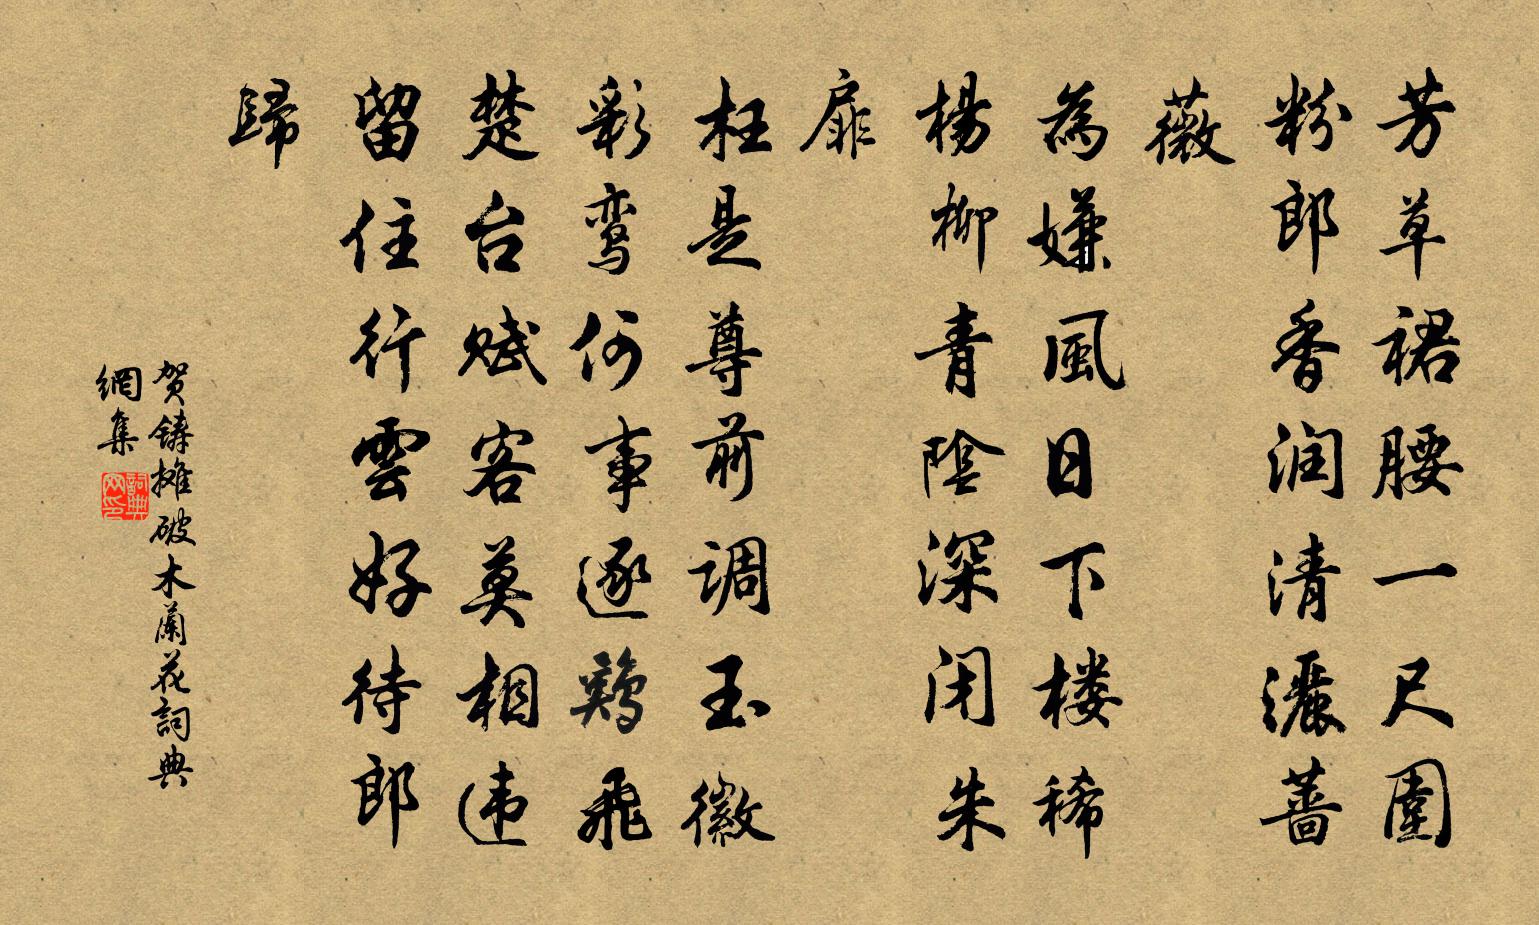 芳草裙腰一尺圍
粉郎香润清灑蔷
薇
為嫌風日下楼稀
楊柳青陰深闭朱
扉
枉是尊前调玉徽
彩鸾何事逐鷄飛
楚台赋客莫相违
留住行雲好待郎
歸
贺鑄摊破木蘭花詞典
網集
詞典网印